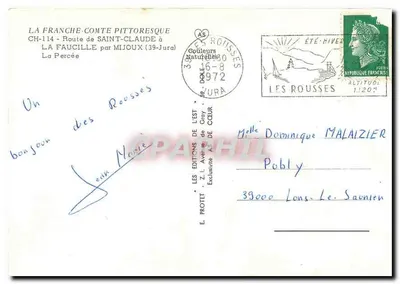 LA FRANCHE-COMTE PITTORESQUE
CH-114 - Route de SAINT-CLAUDE à
LA FAUCILLE par MIJOUX (39-Jura)
La Percée
AS
Couleurs
Naturelles
LES ROUSSES
16-8
1972
JURA
ÉTÉ-HIVER
ALTITUDE
LES ROUSSES
REPUBLIQUE FRANÇAISE
Un
bonjour des Rousses
Jean Marie
LES EDITIONS DE L'EST
E. PROTET - Z.I. Avenue de Gray
Melle Dominique MALAIZIER
Pobly
39000 Lons-Le Saunier